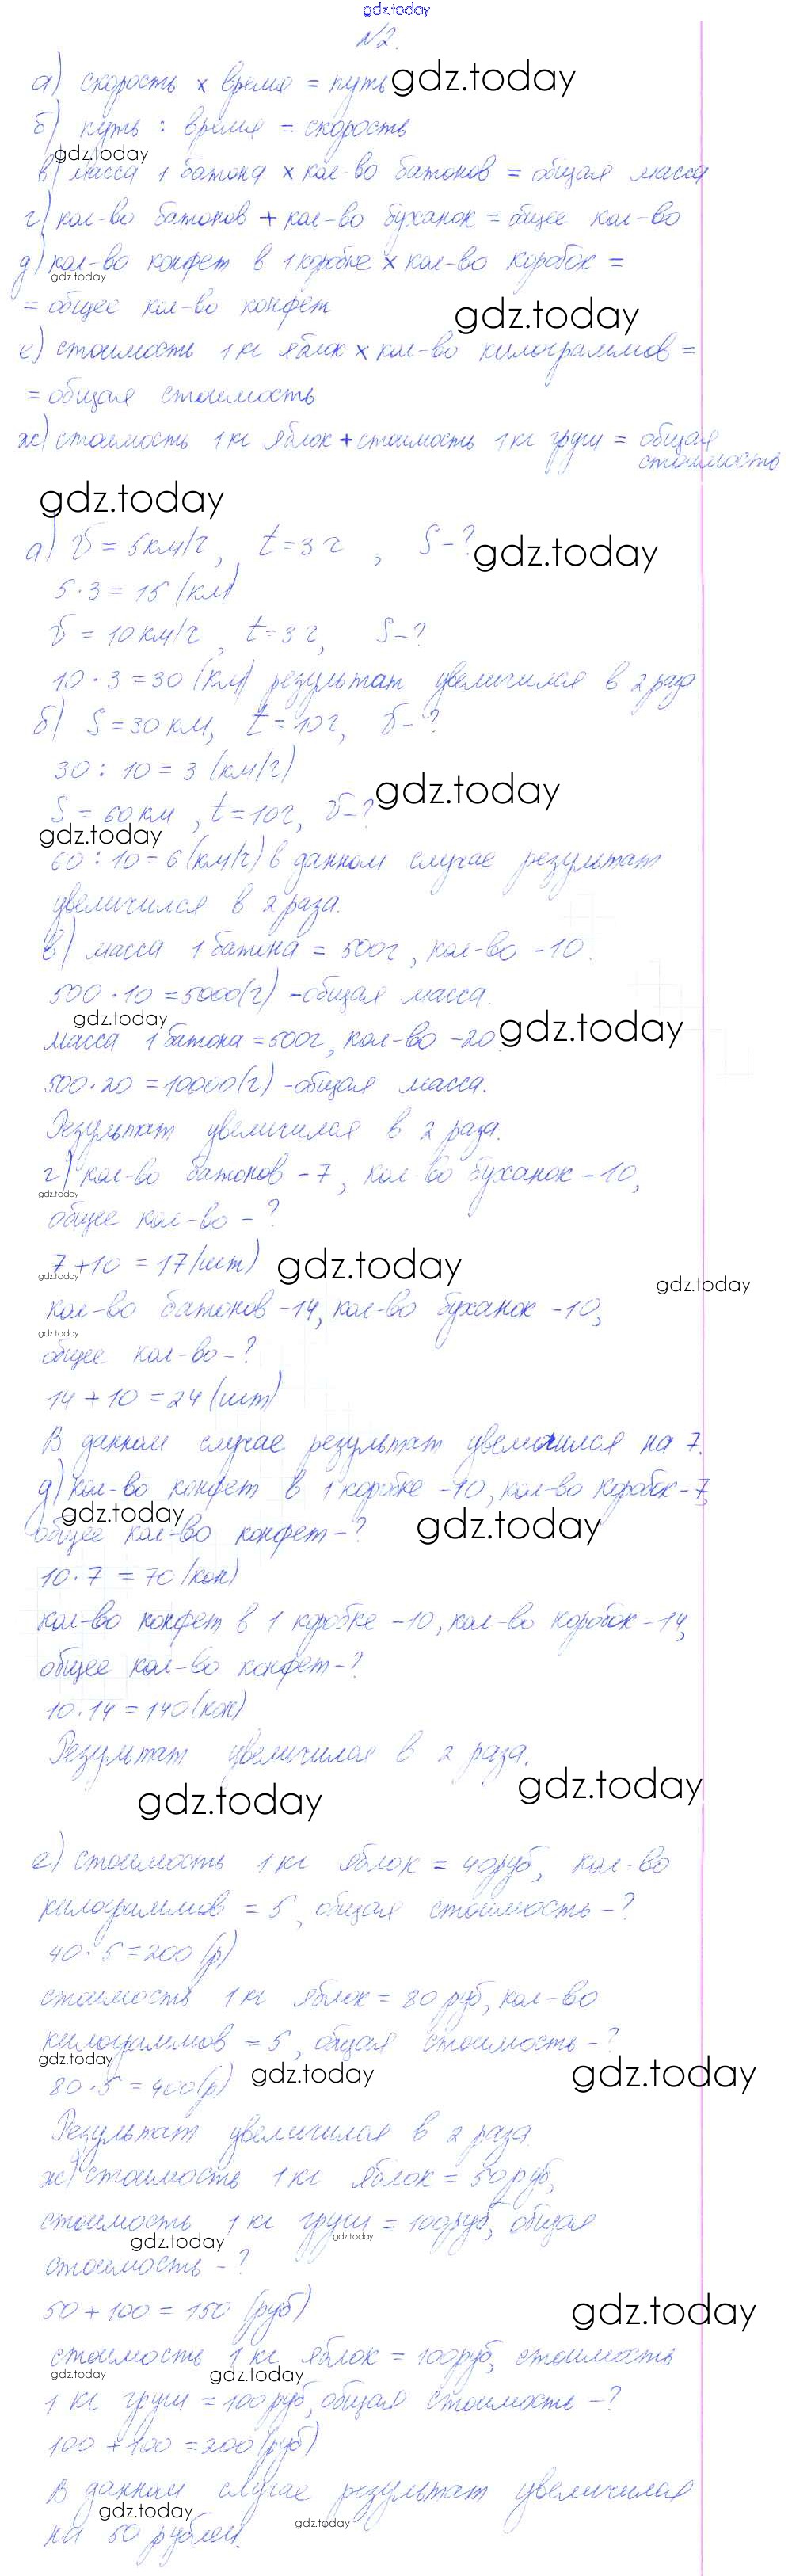 gdz.today
№2.
а) скорость × время = путь gdz.today
б) путь : время = скорость
gdz.today
в) масса 1 батона × кол-во батонов = общая масса
г) кол-во батонов + кол-во буханок = общее кол-во
д) кол-во конфет в 1 коробке × кол-во коробок =
gdz.today
= общее кол-во конфет gdz.today
е) стоимость 1 кг яблок × кол-во килограммов =
= общая стоимость
ж) стоимость 1 кг яблок + стоимость 1 кг груш = общая
стоимость
gdz.today
а) V = 5 км/ч, t = 3 ч, S - ? gdz.today
5 · 3 = 15 (км)
V = 10 км/ч, t = 3 ч, S - ?
10 · 3 = 30 (км) результат увеличился в 2 раза.
б) S = 30 км, t = 10 ч, V - ?
30 : 10 = 3 (км/ч)
gdz.today
S = 60 км, t = 10 ч, V - ?
gdz.today
60 : 10 = 6 (км/ч) в данном случае результат
увеличился в 2 раза.
в) масса 1 батона = 500 г, кол-во - 10.
500 · 10 = 5000 (г) - общая масса.
gdz.today gdz.today
масса 1 батона = 500 г, кол-во - 20.
500 · 20 = 10000 (г) - общая масса.
Результат увеличился в 2 раза.
г) кол-во батонов - 7, кол-во буханок - 10,
gdz.today
общее кол-во - ?
7 + 10 = 17 (шт) gdz.today
gdz.today gdz.today
кол-во батонов - 14, кол-во буханок - 10,
gdz.today
общее кол-во - ?
14 + 10 = 24 (шт)
В данном случае результат увеличился на 7.
д) кол-во конфет в 1 коробке - 10, кол-во коробок - 7,
gdz.today gdz.today
общее кол-во конфет - ?
10 · 7 = 70 (кон)
кол-во конфет в 1 коробке - 10, кол-во коробок - 14,
общее кол-во конфет - ?
10 · 14 = 140 (кон)
Результат увеличился в 2 раза.
gdz.today gdz.today
е) стоимость 1 кг яблок = 40 руб, кол-во
килограммов = 5, общая стоимость - ?
40 · 5 = 200 (р)
стоимость 1 кг яблок = 80 руб, кол-во
килограммов = 5, общая стоимость - ?
gdz.today gdz.today gdz.today
80 · 5 = 400 (р)
Результат увеличился в 2 раза.
ж) стоимость 1 кг яблок = 50 руб,
стоимость 1 кг груш = 100 руб, общая
gdz.today gdz.today
стоимость - ?
50 + 100 = 150 (руб) gdz.today
стоимость 1 кг яблок = 100 руб, стоимость
gdz.today gdz.today
1 кг груш = 100 руб, общая стоимость - ?
100 + 100 = 200 (руб)
В данном случае результат увеличился
gdz.today gdz.today
на 50 рублей.